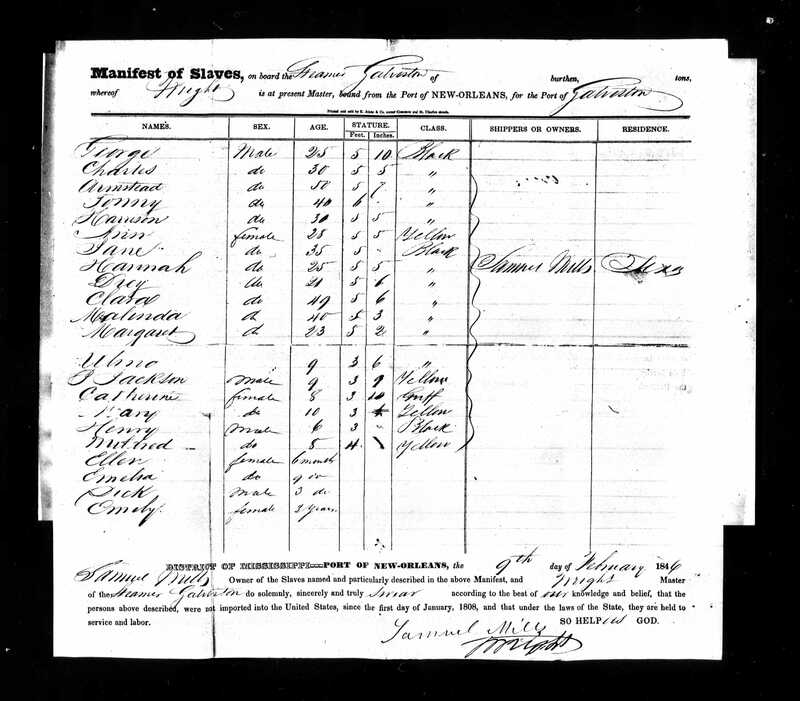 Manifest of Slaves, on board the Steamer Galveston of burthen, tons,
whereof Wright is at present Master, bound from the Port of NEW-ORLEANS, for the Port of Galveston
NAMES. SEX. AGE. STATURE. CLASS. SHIPPERS OR OWNERS. RESIDENCE.
Feet. Inches.
George Male 25 5 10 Black
Charles do 30 5 5 "
Armstead do 50 5 7 "
Tonny do 40 6 . "
Harrison do 30 5 5 "
Ann female 28 5 5 Yellow
Jane do 35 5 . Black
Hannah do 25 5 5 " Samuel Mills Texas
Drey do 21 5 6 "
Clara do 49 5 6 "
Malinda do 40 5 3 "
Margaret do 23 5 2 "
9 3 6 "
Jackson Male 9 3 9 Yellow
Catherine female 8 3 10 Griff
Mary do 10 3 Yellow
Henry Male 6 3 " Black
Mildred do 8 4 Yellow
Ellen female 6 months
Emelia do 9 do
Dick Male 3 do
Emely female 3 Years
DISTRICT OF MISSISSIPPI—PORT OF NEW-ORLEANS, the 9th day of February 1846
Samuel Mills Owner of the Slaves named and particularly described in the above Manifest, and Wright Master
of the Steamer Galveston do solemnly, sincerely and truly Swear according to the best of our knowledge and belief, that the
persons above described, were not imported into the United States, since the first day of January, 1808, and that under the laws of the State, they are held to
service and labor. SO HELP us GOD.
Samuel Mills
Wright